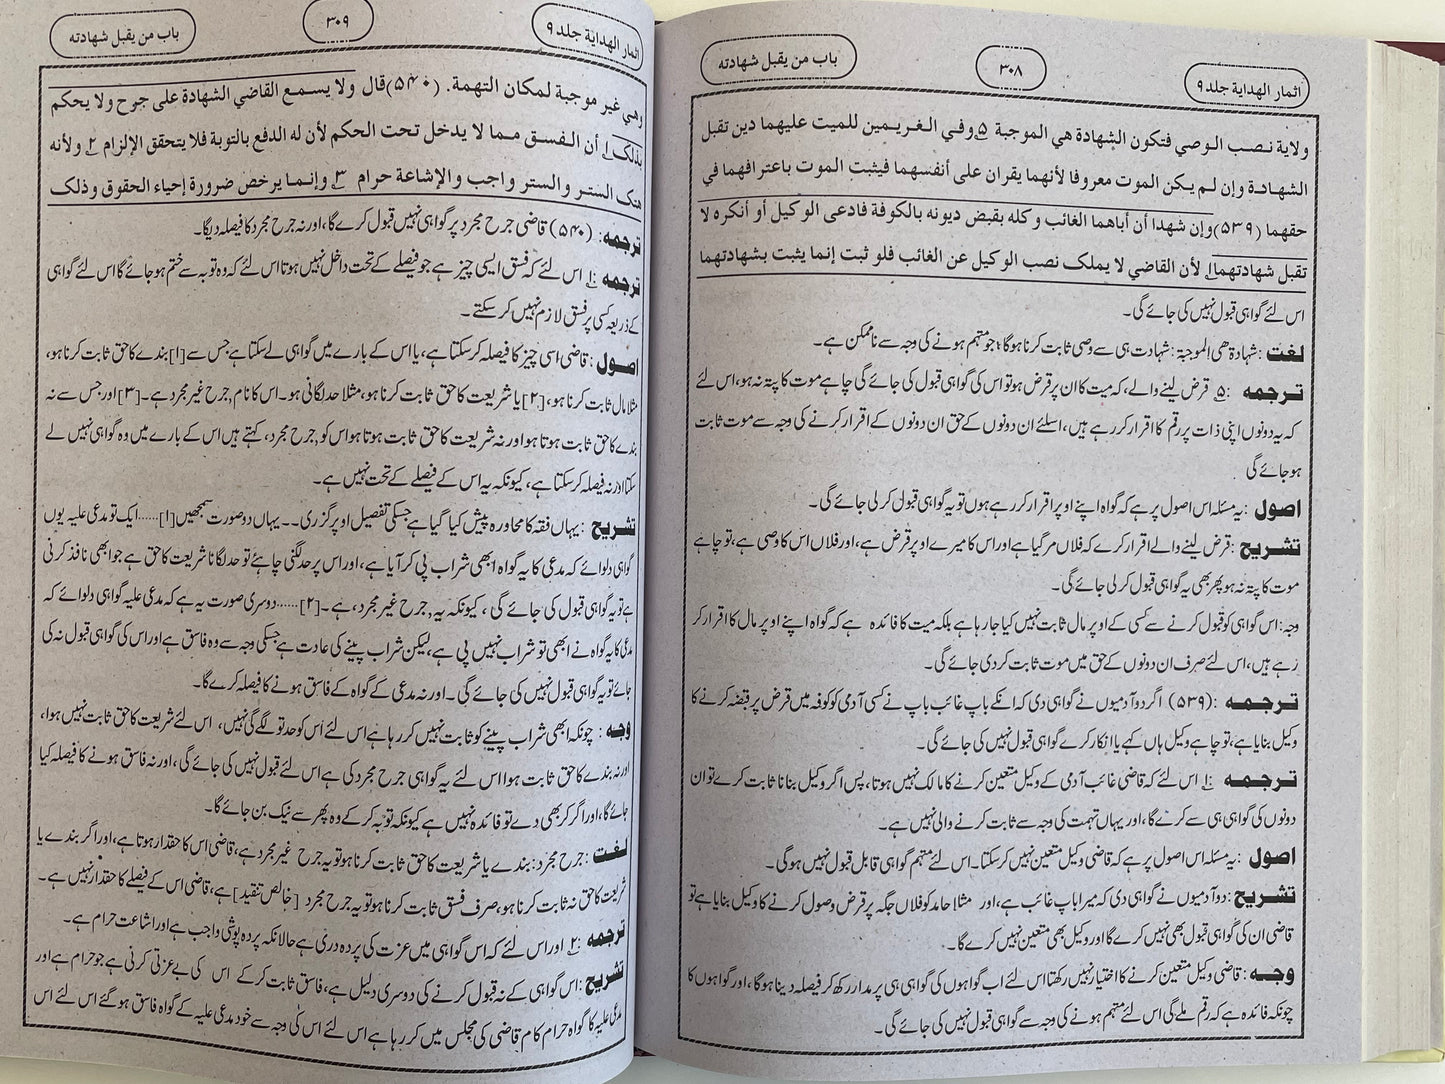 اثمار الهداية جلد ۹
۳۰۸
باب من يقبل شهادته
ولاية نصب الوصي فتكون الشهادة هي الموجبة ۵ وفي الغريمين للميت عليهما دين تقبل
الشهادة وإن لم يكن الموت معروفا لأنهما يقران على أنفسهما فيثبت الموت باعترافهما في
حقهما (۵۳۹) وإن شهدا أن أباهما الغائب وكله بقبض ديونه بالكوفة فادعى الوكيل أو أنكره لا
تقبل شهادتهما ۱ لأن القاضي لا يملك نصب الوكيل عن الغائب فلو ثبت إنما يثبت بشهادتهما
اس لئے گواہی قبول نہیں کی جائے گی۔
لغت : شہادۃ ھی الموجبۃ : شہادت ہی سے وصی ثابت کرنا ہوگا، جو متہم ہونے کی وجہ سے ناممکن ہے۔
ترجمہ : ۵ قرض لینے والے، کہ میت کا ان پر قرض ہو تو اس کی گواہی قبول کی جائے گی چاہے موت کا پتہ نہ ہو، اس لئے
کہ یہ دونوں اپنی ذات پر رقم کا اقرار کر رہے ہیں، اسلئے ان دونوں کے حق ان دونوں کے اقرار کرنے کی وجہ سے موت ثابت
ہو جائے گی
اصول : یہ مسئلہ اس اصول پر ہے کہ گواہ اپنے اوپر اقرار کر رہے ہوں تو یہ گواہی قبول کر لی جائے گی۔
تشریح : قرض لینے والے اقرار کرے کہ فلاں مر گیا ہے اور اس کا میرے اوپر قرض ہے، اور فلاں اس کا وصی ہے، تو چاہے
موت کا پتہ نہ ہو پھر بھی یہ گواہی قبول کر لی جائے گی۔
وجہ : اس گواہی کو قبول کرنے سے کسی کے اوپر مال ثابت نہیں کیا جا رہا ہے بلکہ میت کا فائدہ ہے کہ گواہ اپنے اوپر مال کا اقرار کر
رہے ہیں، اس لئے صرف ان دونوں کے حق میں موت ثابت کر دی جائے گی۔
ترجمہ : (۵۳۹) اگر دو آدمیوں نے گواہی دی کہ انکے باپ غائب باپ نے کسی آدمی کو کوفہ میں قرض پر قبضہ کرنے کا
وکیل بنایا ہے، تو چاہے وکیل ہاں کہے یا انکار کرے گواہی قبول نہیں کی جائے گی۔
ترجمہ : ۱ اس لئے کہ قاضی غائب آدمی کے وکیل متعین کرنے کا مالک نہیں ہوتا، پس اگر وکیل بنانا ثابت کرے تو ان
دونوں کی گواہی ہی سے کرے گا، اور یہاں تہمت کی وجہ سے ثابت کرنے والی نہیں ہے۔
اصول : یہ مسئلہ اس اصول پر ہے کہ قاضی وکیل متعین نہیں کر سکتا۔ اس لئے متہم گواہی قابل قبول نہیں ہوگی۔
تشریح : دو آدمیوں نے گواہی دی کہ میرا باپ غائب ہے، اور مثلا حامد کو فلاں جگہ پر قرض وصول کرنے کا وکیل بنایا ہے تو
قاضی ان کی گواہی قبول بھی نہیں کرے گا اور وکیل بھی متعین نہیں کرے گا۔
وجہ : قاضی وکیل متعین کرنے کا اختیار نہیں رکھتا اس لئے اب گواہوں کی گواہی ہی پر مدار رکھ کر فیصلہ دینا ہوگا، اور گواہوں کا
چونکہ فائدہ ہے کہ رقم ملے گی اس لئے متہم ہونے کی وجہ سے گواہی قبول نہیں کی جائے گی۔
اثمار الهداية جلد ۹
۳۰۹
باب من يقبل شهادته
وهي غير موجبة لمكان التهمة. (۵۴۰) قال ولا يسمع القاضي الشهادة على جرح ولا يحكم
بذلك ۱ أن الفسق مما لا يدخل تحت الحكم لأن له الدفع بالتوبة فلا يتحقق الإلزام ۲ ولأنه
هتك الستر والستر واجب والإشاعة حرام ۳ وإنما يرخص ضرورة إحياء الحقوق وذلك
ترجمہ : (۵۴۰) قاضی جرح مجرد پر گواہی نہیں قبول کرے گا، اور نہ جرح مجرد کا فیصلہ دیگا۔
ترجمہ : ۱ اس لئے کہ فسق ایسی چیز ہے جو فیصلے کے تحت داخل نہیں ہوتا اس لئے کہ وہ توبہ سے ختم ہو جائے گا اس لئے گواہی
کے ذریعہ کسی پر فسق لازم نہیں کر سکتے۔
اصول : قاضی اسی چیز کا فیصلہ کر سکتا ہے، یا اس کے بارے میں گواہی لے سکتا ہے جس سے [۱] بندے کا حق ثابت کرنا ہو،
مثلا مال ثابت کرنا ہو، [۲] یا شریعت کا حق ثابت کرنا ہو، مثلا حد لگانی ہو۔ اس کا نام، جرح غیر مجرد ہے۔ [۳] اور جس سے نہ
بندے کا حق ثابت ہوتا ہو اور نہ شریعت کا حق ثابت ہوتا ہو اس کو، جرح مجرد، کہتے ہیں اس کے بارے میں وہ گواہی نہیں لے
سکتا اور نہ فیصلہ کر سکتا ہے، کیونکہ یہ اس کے فیصلے کے تحت نہیں ہے۔
تشریح : یہاں فقہ کا محاورہ پیش کیا گیا ہے جسکی تفصیل اوپر گزری۔۔ یہاں دو صورت سمجھیں [۱]......ایک تو مدعی علیہ یوں
گواہی دلوائے کہ مدعی کا یہ گواہ ابھی شراب پی کر آیا ہے، اور اس پر حد لگنی چاہئے تو حد لگانا شریعت کا حق ہے جو ابھی نافذ کرنی
ہے تو یہ گواہی قبول کی جائے گی، کیونکہ یہ، جرح غیر مجرد، ہے۔ [۲]......دوسری صورت یہ ہے کہ مدعی علیہ گواہی دلوائے کہ
مدعی کا یہ گواہ نے ابھی تو شراب نہیں پی ہے، لیکن شراب پینے کی عادت ہے جسکی وجہ سے وہ فاسق ہے اور اس کی گواہی قبول نہ کی
جائے تو یہ گواہی قبول نہیں کی جائے گی۔ اور نہ مدعی کے گواہ کے فاسق ہونے کا فیصلہ کرے گا۔
وجہ : چونکہ ابھی شراب پینے کو ثابت نہیں کر رہا ہے اس لئے اس کو حد تو لگے گی نہیں، اس لئے شریعت کا حق ثابت نہیں ہوا،
اور نہ بندے کا حق ثابت ہوا اس لئے یہ گواہی جرح مجرد کی ہے اس لئے قبول نہیں کی جائے گی، اور نہ فاسق ہونے کا فیصلہ کیا
جائے گا، اور اگر کر بھی دے تو فائدہ نہیں ہے کیونکہ توبہ کر کے وہ پھر سے نیک بن جائے گا۔
لغت : جرح مجرد : بندے یا شریعت کا حق ثابت کرنا ہو تو یہ جرح غیر مجرد ہے، قاضی اس کا حقدار ہوتا ہے، اور اگر بندے یا
شریعت کا حق نہ ثابت کرنا ہو، صرف فسق ثابت کرنا ہو تو یہ جرح مجرد [خالص تنقید] ہے، قاضی اس کے فیصلے کا حقدار نہیں ہے۔
ترجمہ : ۲ اور اس لئے کہ اس گواہی میں عزت کی پردہ دری ہے حالانکہ پردہ پوشی واجب ہے اور اشاعت حرام ہے۔
تشریح : اس گواہی کے نہ قبول کرنے کی دوسری دلیل ہے، فاسق ثابت کر کے اس کی بے عزتی کرنی ہے جو حرام ہے اور
مدعی علیہ کا گواہ حرام کام قاضی کی مجلس میں کر رہا ہے اس لئے اس کی وجہ سے خود مدعی علیہ کے گواہ فاسق ہو گئے اس لئے اس